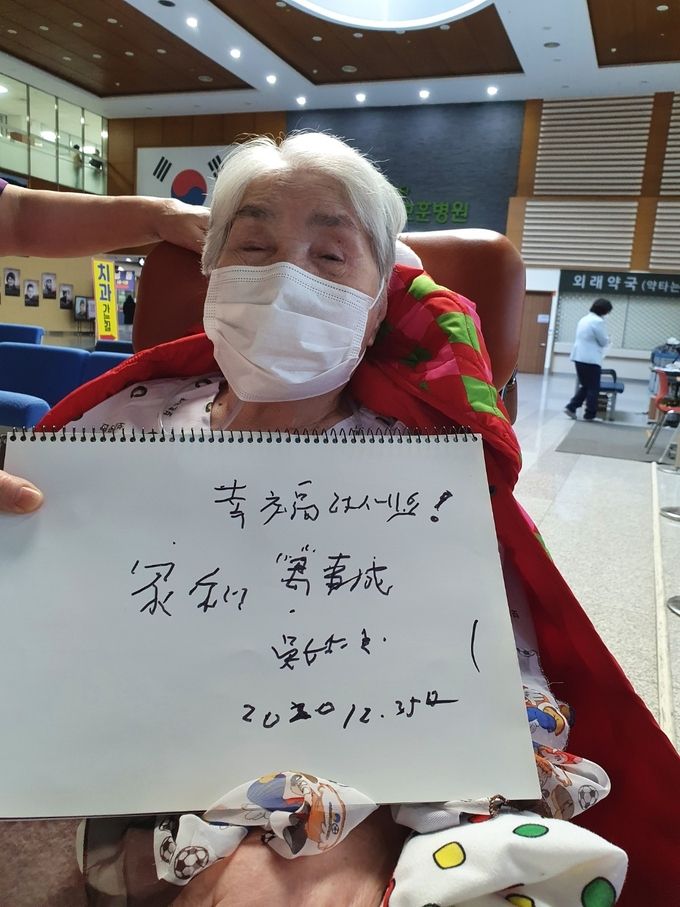 훈병원
치과
가는길
외래약국 (약타는
幸福하세요!
家和 "萬"事成
2020 12. 25日